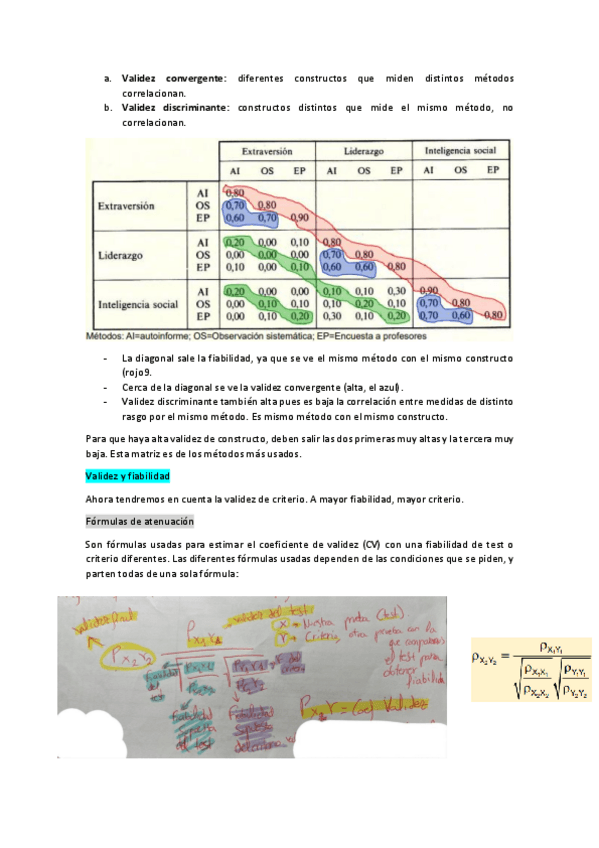 a. Validez convergente: diferentes constructos que miden distintos métodos
correlacionan.
b. Validez discriminante: constructos distintos que mide el mismo método, no
correlacionan.
Extraversión Liderazgo Inteligencia social
AI OS EP AI OS EP AI OS EP
Extraversión AI 0,80
OS 0,70 0,80
EP 0,60 0,70 0,90
Liderazgo AI 0,20 0,00 0,10 0,80
OS 0,00 0,00 0,00 0,70 0,80
EP 0,10 0,00 0,10 0,60 0,60 0,80
Inteligencia social AI 0,20 0,00 0,00 0,10 0,10 0,30 0,90
OS 0,00 0,10 0,10 0,10 0,20 0,10 0,70 0,80
EP 0,00 0,10 0,20 0,30 0,10 0,20 0,70 0,60 0,80
Métodos: AI=autoinforme; OS=Observación sistemática; EP=Encuesta a profesores
- La diagonal sale la fiabilidad, ya que se ve el mismo método con el mismo constructo
(rojo9.
- Cerca de la diagonal se ve la validez convergente (alta, el azul).
- Validez discriminante también alta pues es baja la correlación entre medidas de distinto
rasgo por el mismo método. Es mismo método con el mismo constructo.
Para que haya alta validez de constructo, deben salir las dos primeras muy altas y la tercera muy
baja. Esta matriz es de los métodos más usados.
Validez y fiabilidad
Ahora tendremos en cuenta la validez de criterio. A mayor fiabilidad, mayor criterio.
Fórmulas de atenuación
Son fórmulas usadas para estimar el coeficiente de validez (CV) con una fiabilidad de test o
criterio diferentes. Las diferentes fórmulas usadas dependen de las condiciones que se piden, y
parten todas de una sola fórmula:
validez final
validez del test
X → Nuestra prueba (test)
Y → Criterio, otra prueba con la
que comparamos
el test para
obtener
fiabilidad
Fiabilidad
del
test
ρX₂Y₂ = ρX₁Y₁ / (√(ρX₁X₁ / ρX₂X₂) √(ρY₁Y₁ / ρY₂Y₂))